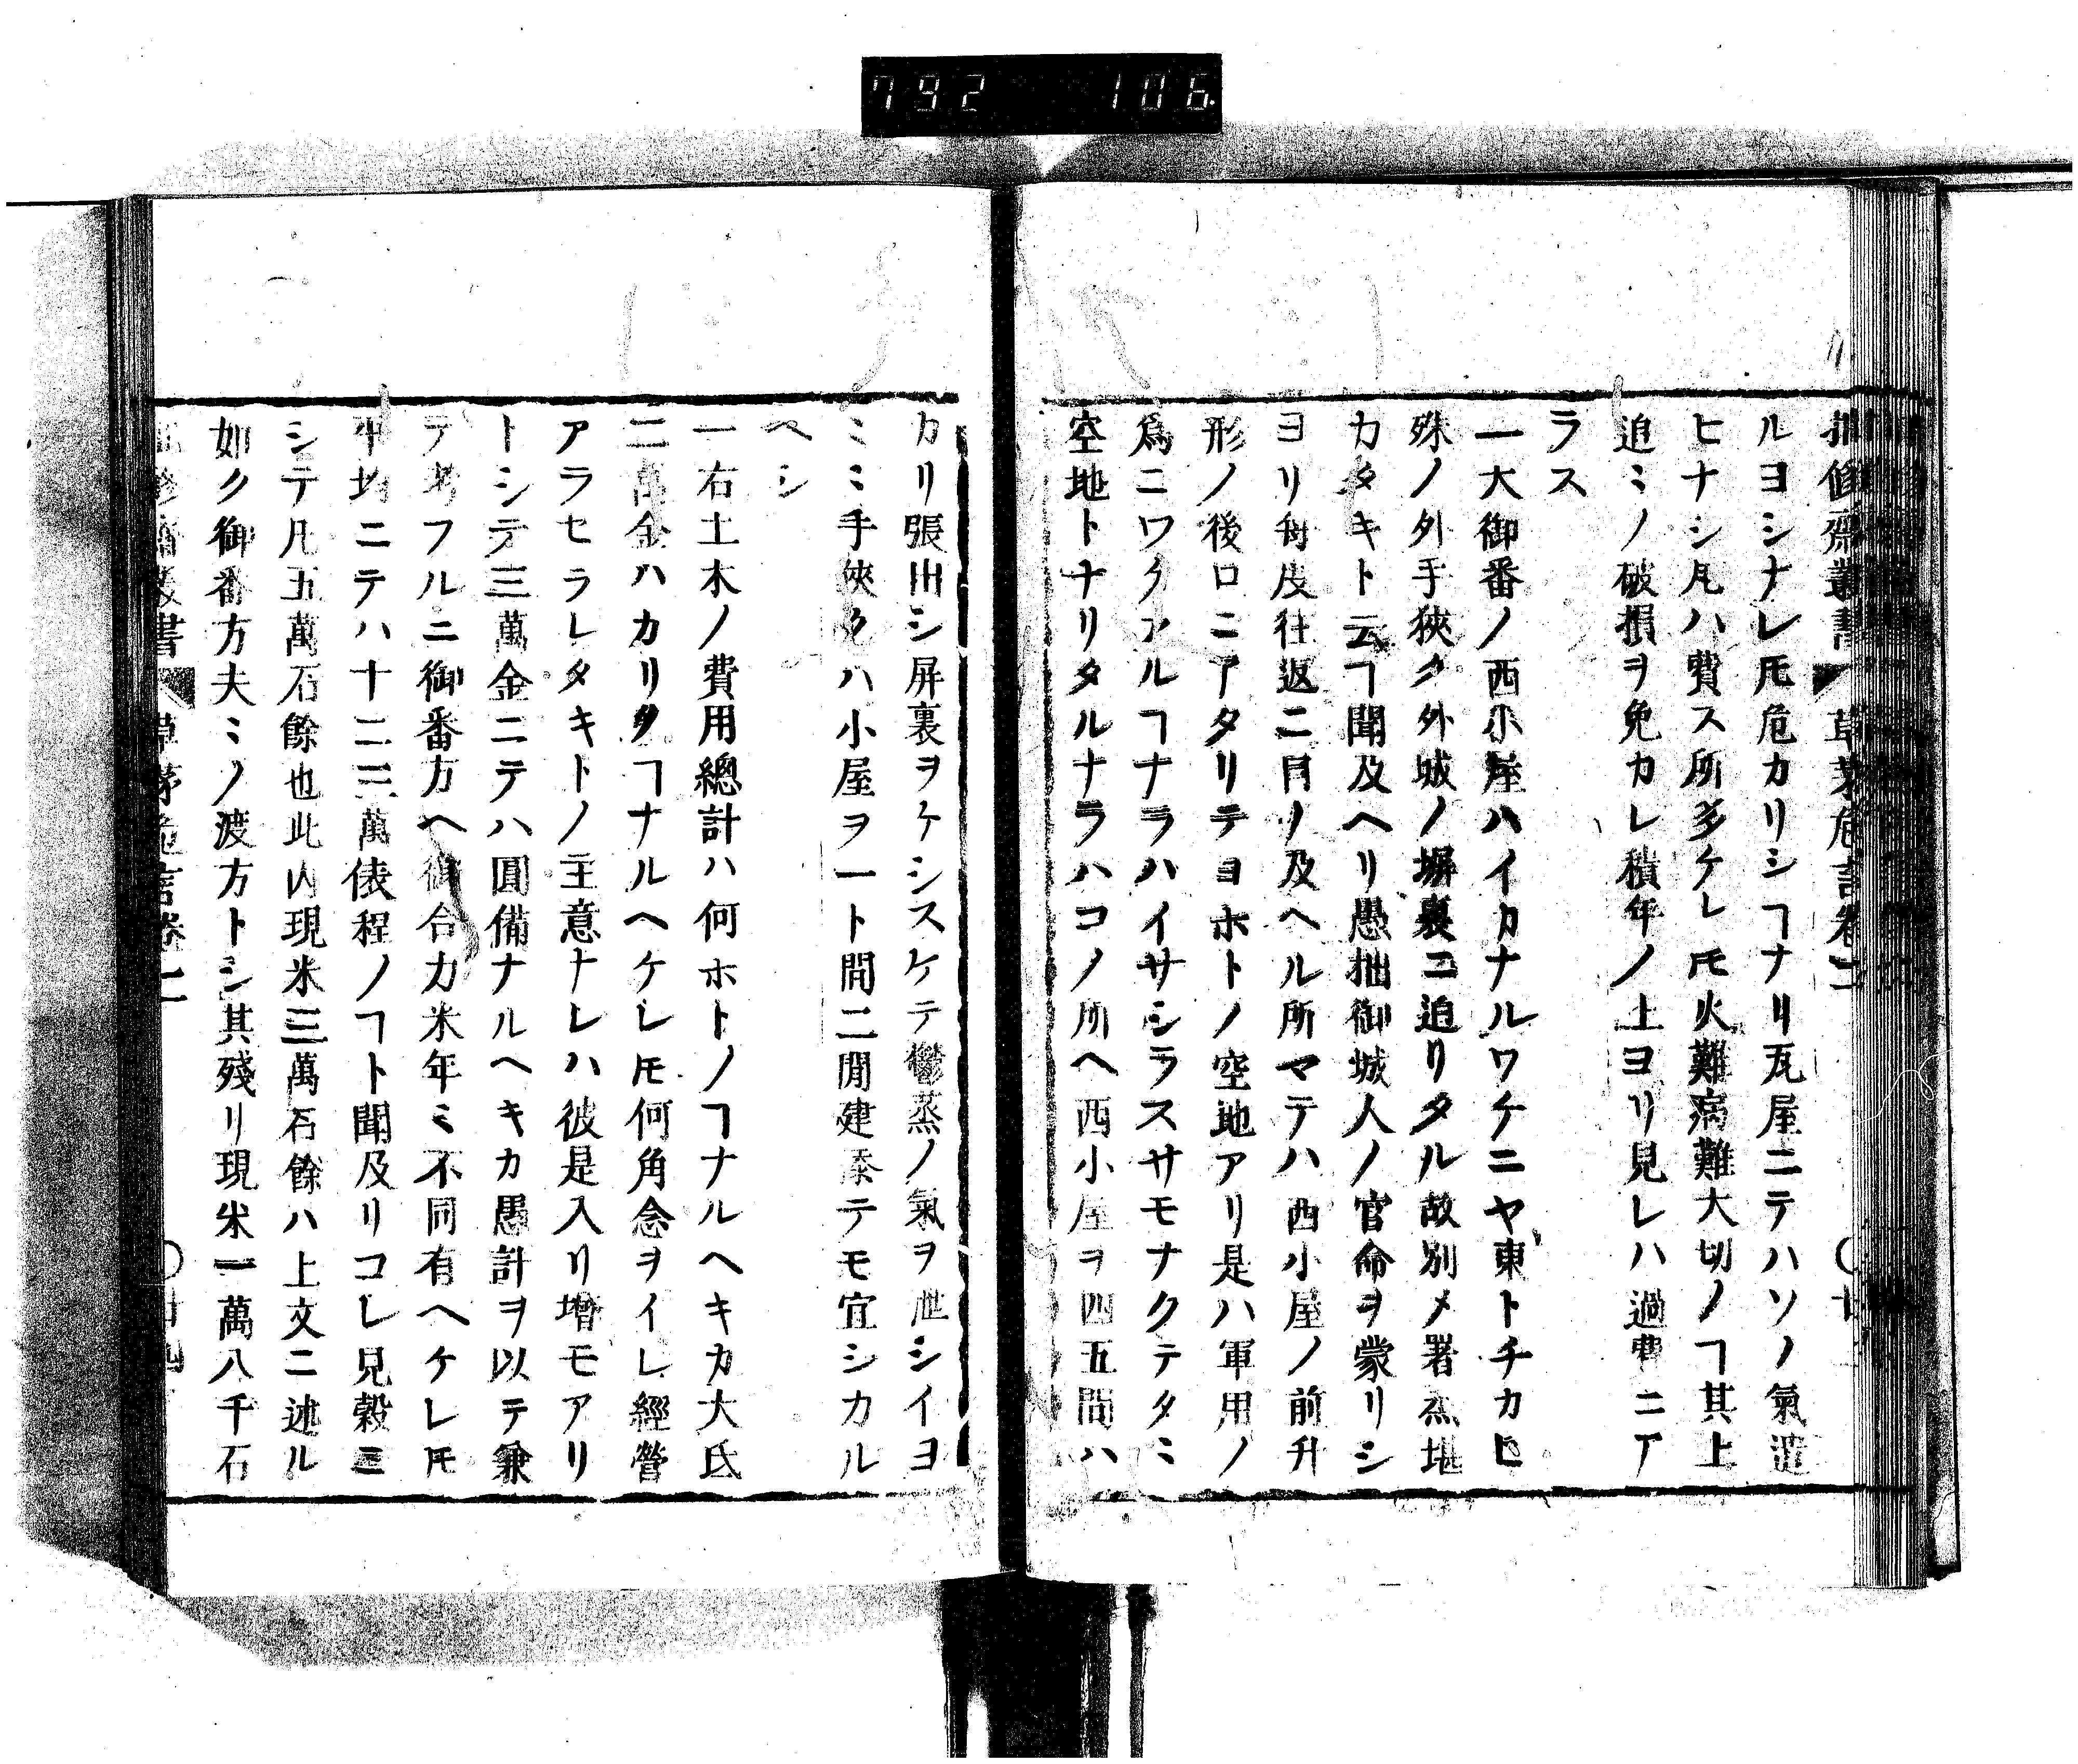 792 106
拙修齋叢書 草茅危言卷二
ルヨシナレ𪜈危カリシヿナリ瓦屋ニテハソノ氣遣
ヒナシ凡ハ費ス所多ケレ𪜈火難病難大切ノヿ其上
追ミノ破損ヲ免カレ積年ノ上ヨリ見レハ過費ニア
ラス
一大御番ノ西小屋ハイカナルワケニヤ東トチカヒ
殊ノ外手狹ク外城ノ塀裏ニ迫リタル故別メ署蒸堪
カタキト云ヿ聞及ヘリ愚拙御城人ノ官命ヲ蒙リシ
ヨリ每度往返ニ目ノ及ヘル所マテハ西小屋ノ前升
形ノ後ロニアタリテヨホトノ空地アリ是ハ軍用ノ
爲ニワクアルヿナラハイサシラスサモナクテタミ
空地トナリタルナラハコノ所ヘ西小屋ヲ四五間ハ
カリ張出シ屏裏ヲケシスケテ鬱蒸ノ氣ヲ泄シイヨ
ミミ手狹クハ小屋ヲ一ト間二間建添テモ宜シカル
ヘシ
一右土木ノ費用總計ハ何ホトノヿナルヘキカ大氐
二萬金ハカリタヿナルヘケレ𪜈何角念ヲイレ經營
アラセラレタキトノ主意ナレハ彼是入リ增モアリ
トシテ三萬金ニテハ圓備ナルヘキカ愚計ヲ以テ兼
テ考フルニ御番方ヘ御合力米年ミ不同有ヘケレ𪜈
平均ニテハ十二三萬俵程ノヿト聞及リコレ見穀ミ
シテ凡五萬石餘也此内現米三萬石餘ハ上文ニ述ル
如ク御番方夫ミノ渡方トシ其殘リ現米一萬八千石
叢書 草茅危言卷二 〇廿四